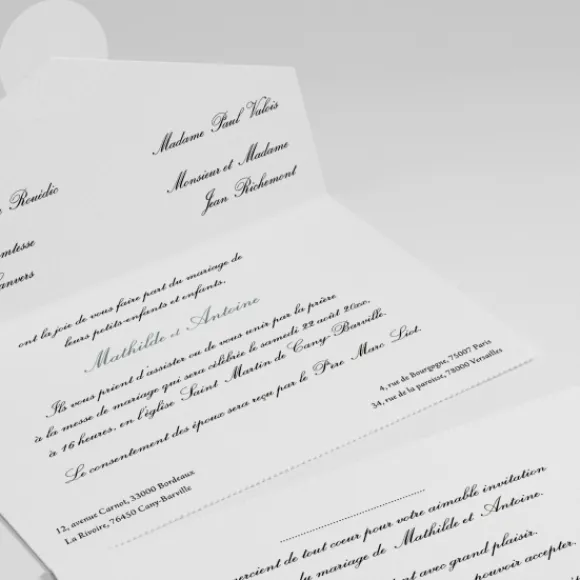 Rouëdic
Madame Paul Valois
Monsieur et Madame
Jean Richemont
ont la joie de vous faire part du mariage de
leurs petits-enfants et enfants,
Mathilde et Antoine
Ils vous prient d'assister ou de vous unir par la prière
à la messe de mariage qui sera célébrée le samedi 22 août 20xx,
à 16 heures, en l'église Saint Martin de Cany-Barville.
Le consentement des époux sera reçu par le Père Marc Liot.
12, avenue Carnot, 33000 Bordeaux
La Rivoire, 76450 Cany-Barville
4, rue de Bourgogne, 75007 Paris
34, rue de la paroisse, 78000 Versailles
de tout coeur pour votre aimable invitation
du mariage de Mathilde et Antoine.
avec grand plaisir.
pouvoir accepter.